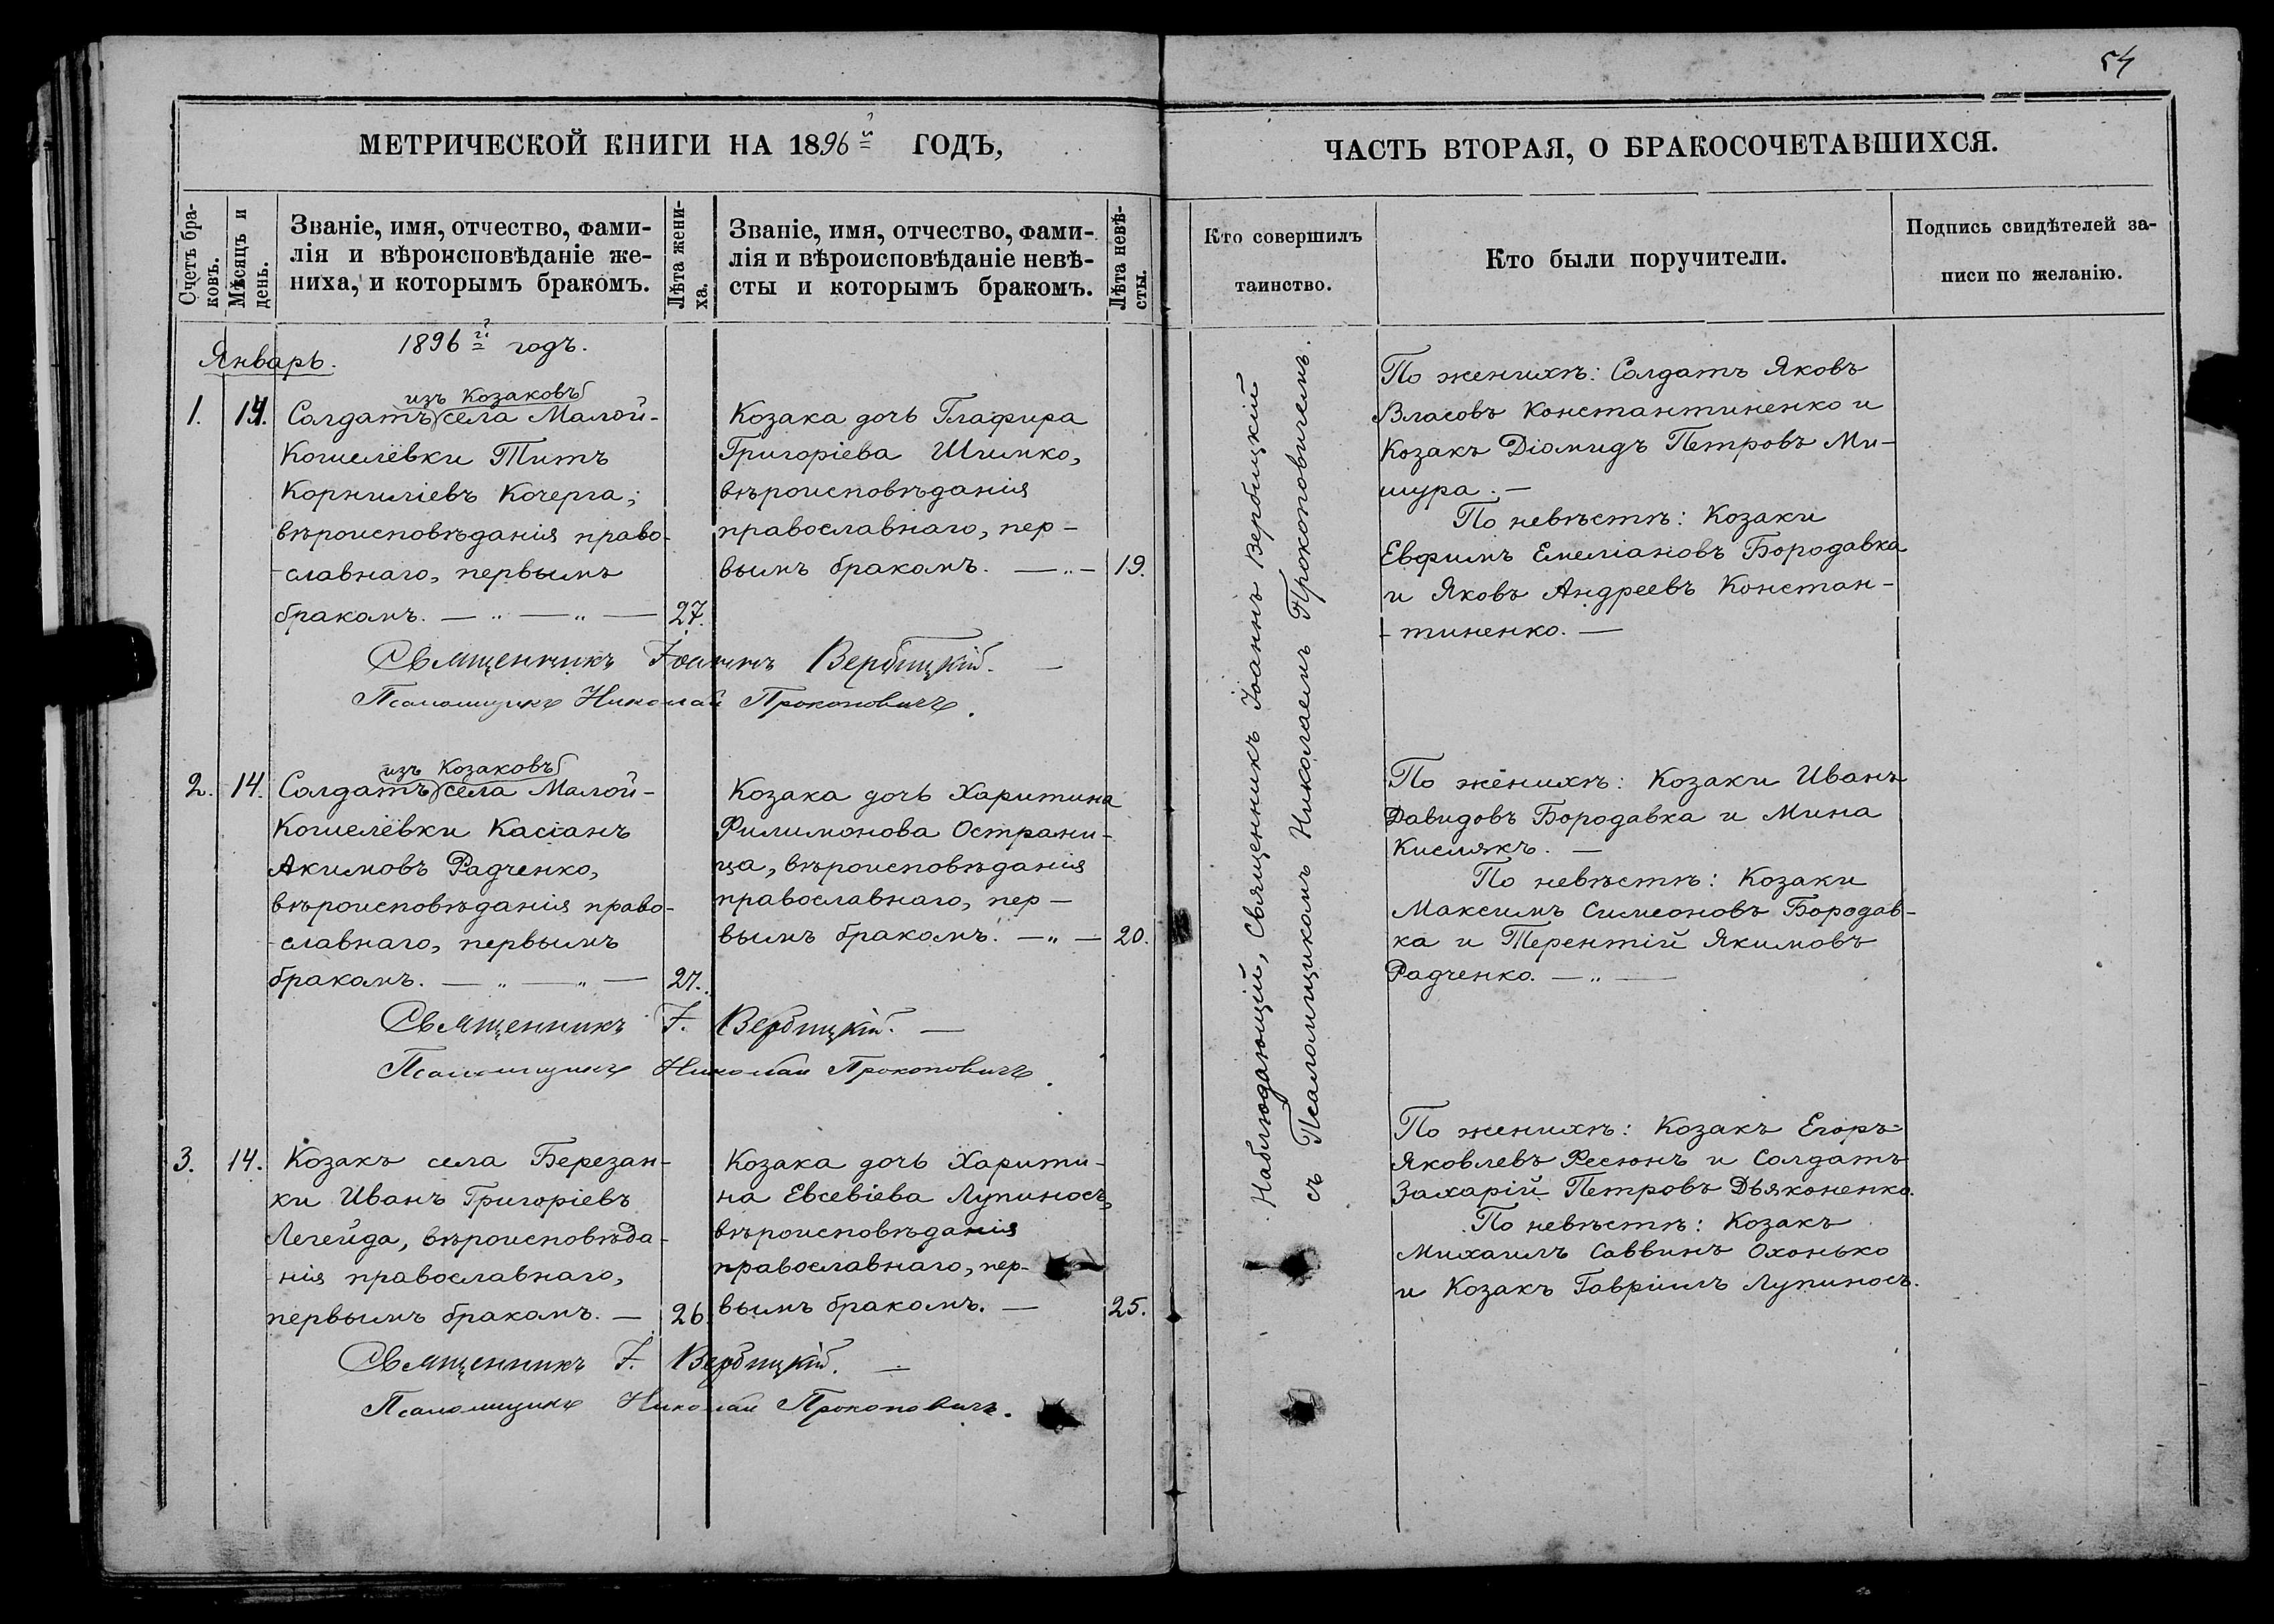 54
МЕТРИЧЕСКОЙ КНИГИ НА 1896й ГОДЪ,
ЧАСТЬ ВТОРАЯ, О БРАКОСОЧЕТАВШИХСЯ.
Счетъ бра-
ковъ.
Мѣсяцъ и
день.
Званіе, имя, отчество, фами-
лія и вѣроисповѣданіе же-
ниха, и которымъ бракомъ.
Лѣта жени-
ха.
Званіе, имя, отчество, фами-
лія и вѣроисповѣданіе невѣ-
сты и которымъ бракомъ.
Лѣта невѣ-
сты.
Кто совершилъ
таинство.
Кто были поручители.
Подпись свидѣтелей за-
писи по желанію.
1896й годъ.
Январь.
1.
14.
изъ Козаковъ
Солдатъ села Малой-
Кошелёвки Титъ
Корниліевъ Кочерга;
вѣроисповѣданія право-
-славнаго, первымъ
бракомъ. — „ — „ —
27.
Козака дочь Глафира
Григоріева Шимко,
вѣроисповѣданія
православнаго, пер-
вымъ бракомъ. — „ —
19.
Священникъ Іоаннъ Вербицкій. —
Псаломщикъ Николай Прокоповичъ.
По женихѣ: Солдатъ Яковъ
Власовъ Константиненко и
Козакъ Діомидъ Петровъ Ми-
шура. —
По невѣстѣ: Козаки
Евфимъ Емеліановъ Бородавка
и Яковъ Андреевъ Констан-
-тиненко. —
2.
14.
изъ Козаковъ
Солдатъ села Малой-
Кошелёвки Касіанъ
Акимовъ Радченко,
вѣроисповѣданія право-
-славнаго, первымъ
бракомъ. — „ — „ —
27.
Козака дочь Харитина
Филимонова Острани-
ца, вѣроисповѣданія
православнаго, пер-
вымъ бракомъ. — „ —
20.
Священникъ І. Вербицкій. —
Псаломщикъ Николай Прокоповичъ.
По женихѣ: Козаки Иванъ
Давидовъ Бородавка и Мина
Кислякъ. —
По невѣстѣ: Козаки
Максимъ Симеоновъ Бородав-
ка и Терентій Якимовъ
Радченко. — „ —
3.
14.
Козакъ села Березан-
ки Иванъ Григоріевъ
Легейда, вѣроисповѣда-
-нія православнаго,
первымъ бракомъ. —
26.
Козака дочь Харити-
на Евсевіева Лупиносъ,
вѣроисповѣданія
православнаго, пер-
вымъ бракомъ. —
25.
Священникъ І. Вербицкій. —
Псаломщикъ Николай Прокоповичъ.
По женихѣ: Козакъ Егоръ
Яковлевъ Ресюнъ и Солдатъ
Захарій Петровъ Дьяконенко.
По невѣстѣ: Козакъ
Михаилъ Саввинъ Охонько
и Козакъ Гавріилъ Лупиносъ.
Наблюдающій, Священникъ Іоаннъ Вербицкій
съ Псаломщикомъ Николаемъ Прокоповичемъ.